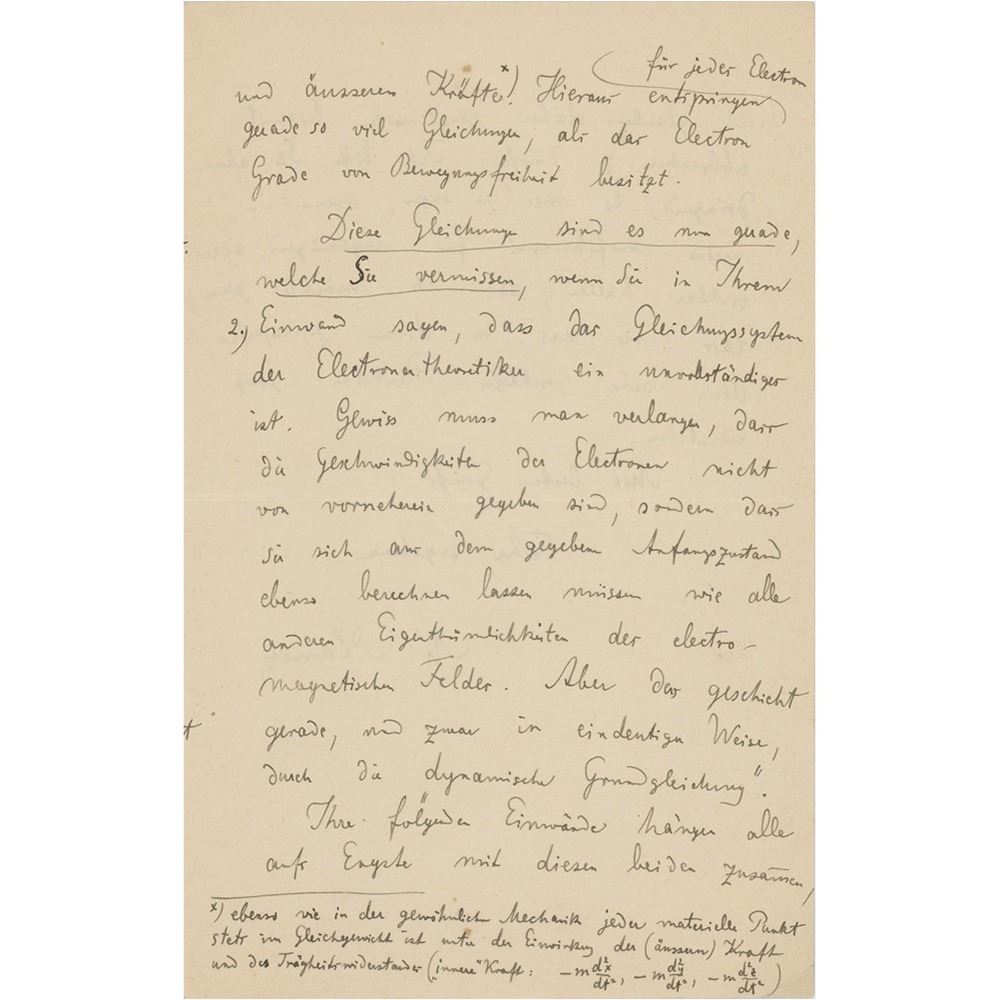 für jedes Electron
und äusseren Kräfte x)! Hieraus entspringen
gerade so viel Gleichungen, als das Electron
Grade von Bewegungsfreiheit besitzt.
Diese Gleichungen sind es nun gerade,
welche Sie vermissen, wenn Sie in Ihrem
2.) Einwand sagen, dass das Gleichungssystem
der Electronentheoretiker ein unvollständiges
ist. Gewiss muss man verlangen, dass
die Geschwindigkeiten der Electronen nicht
von vorneherein gegeben sind, sondern dass
sie sich aus dem gegebenen Anfangszustand
ebenso berechnen lassen müssen wie alle
anderen Eigenthümlichkeiten der electro-
magnetischen Felder. Aber das geschieht
gerade, und zwar in eindeutiger Weise,
durch die "dynamische Grundgleichung".
Ihre folgenden Einwände hängen alle
aufs Engste mit diesen beiden zusammen,
x) ebenso wie in der gewöhnlichen Mechanik jeder materielle Punkt
stets im Gleichgewicht ist unter der Einwirkung der (äussern) Kraft
und des Trägheitswiderstandes ("innere" Kraft: −m d²x/dt², −m d²y/dt², −m d²z/dt²)